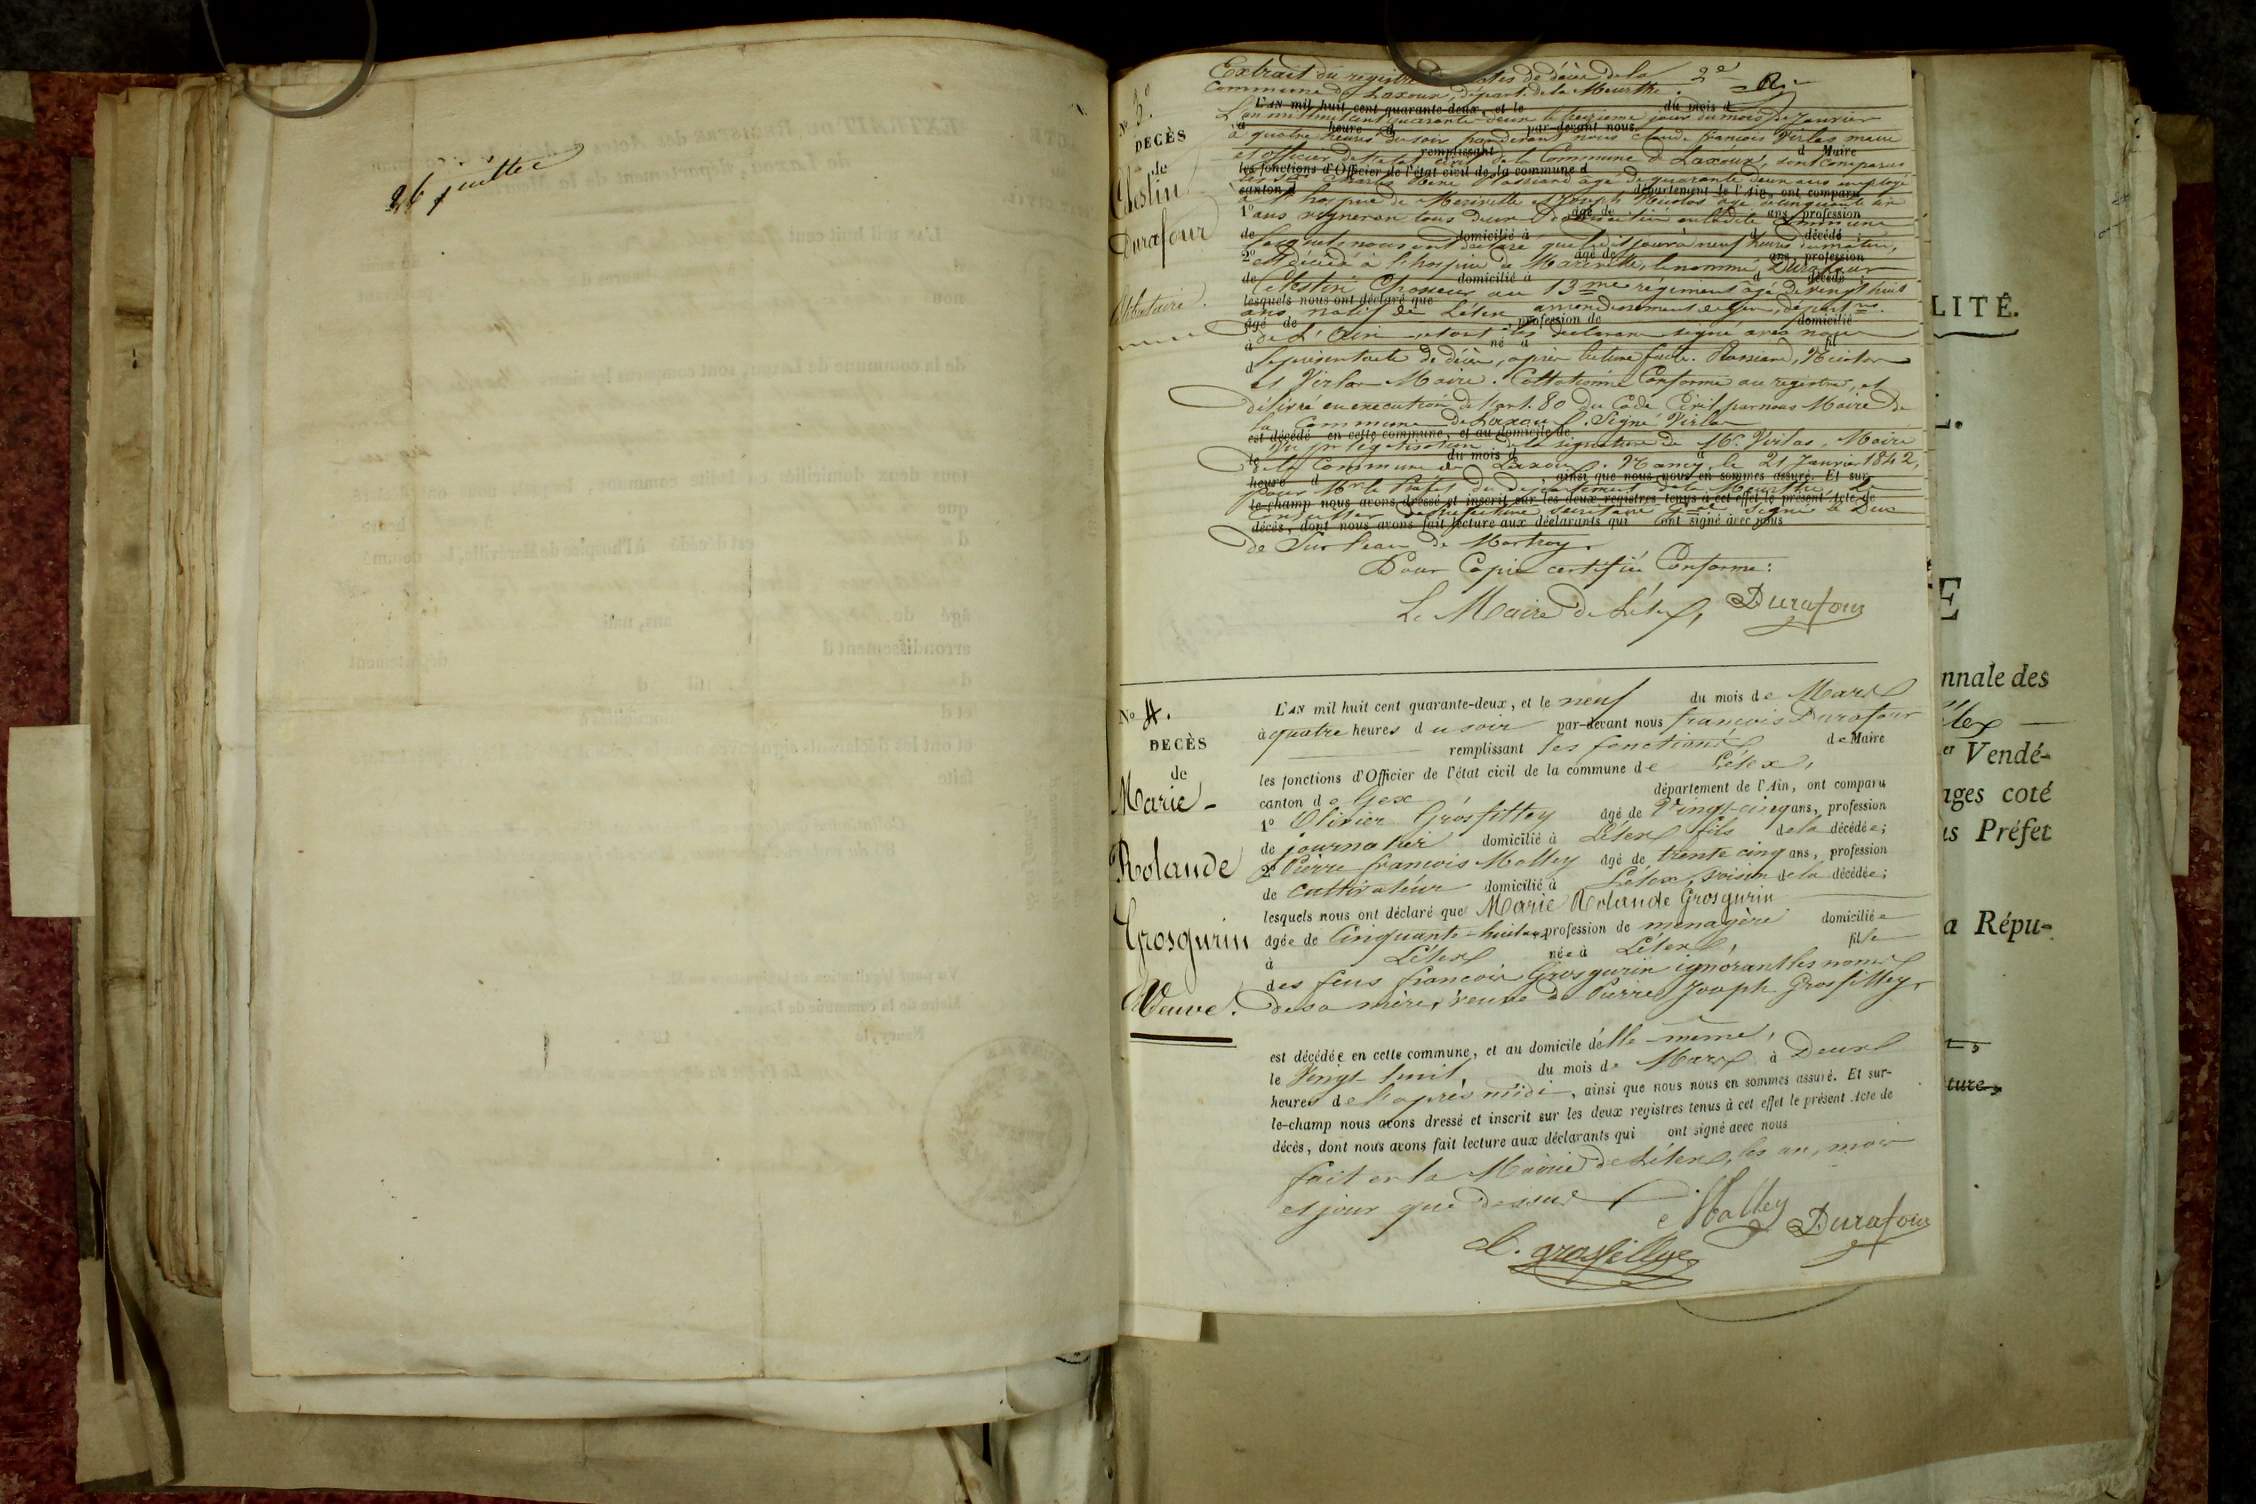 26 juillet
Extrait du registre des actes de décès de la 2e
Commune de Laxoux, départ. de la Meurthe.
No 3.
DECÈS
de
Célestin
Durafour
Célibataire.
L'AN mil huit cent quarante-deux, et le du mois d
L'an mil huit cent quarante-deux le treizième jour du mois de Janvier
à heure d par-devant nous
à quatre heures du soir par devant nous Claude françois Virlas maire
remplissant d Maire
et officier de l'état civil de la Commune de Laxoux, sont comparus
les fonctions d'Officier de l'état civil de la commune d
les Srs Charles René Plassiard âgé de quarante deux ans employé
canton d département de l'Ain, ont comparu
à l'hospice de Maréville et Joseph Nicolas âgé de cinquante six
1o âgé de ans, profession
ans vigneron tous deux domiciliés en ladite Commune
de domicilié à d décédé
lesquels nous ont déclaré que ledit jour à neuf heures du matin,
2o âgé de ans, profession
est décédé à l'hospice de Maréville, le nommé, Durafour
de domicilié à d décédé
Célestin Chasseur au 13me régiment âgé de vingt huit
lesquels nous ont déclaré que
ans natif de Lélex arrondissement de Gex, départ.
âgé de profession de domicilié
de l'Ain et ont les déclarans signé avec nous
à né à fil
d
le présent acte de décès, après lecture faite. Plassiard, Nicolas
et Virlas Maire. Collationné Conforme au registre, et
délivré en execution de l'art. 80 du Code Civil par nous Maire de
la Commune de Laxoux. Signé Virlas
est décédé en cette commune, et au domicile de
Vu pr légalisation de la signature de Mr. Virlas, Maire
le du mois d à
de la Commune de Laxoux. Nancy, le 21 Janvier 1842,
heure d ainsi que nous nous en sommes assuré. Et sur-
pour Mr le Préfet du département de la Meurthe, Le
le-champ nous avons dressé et inscrit sur les deux registres tenus à cet effet le présent Acte de
Conseiller de Préfecture Secrétaire gral signé à Deux
décès, dont nous avons fait lecture aux déclarants qui ont signé avec nous
de Surleau de Mortroy.
Pour Copie certifié Conforme:
Le Maire de Lélex, Durafour
No 4.
DECÈS
de
Marie-
Rolande
Grosgurin
Veuve.
L'AN mil huit cent quarante-deux, et le neuf du mois de Mars
à quatre heures du soir par-devant nous françois Durafour
remplissant les fonctions de Maire
les fonctions d'Officier de l'état civil de la commune de Lélex,
canton de Gex, département de l'Ain, ont comparu
1o Olivier Grosfilley âgé de Vingt-cinq ans, profession
de journalier domicilié à Lélex fils de la décédée;
2o Pierre françois Molley âgé de trente cinq ans, profession
de cultivateur domicilié à Lélex, voisin de la décédée;
lesquels nous ont déclaré que Marie Rolande Grosgurin
agée de Cinquante-huit ans profession de menagère domiciliée
à Lélex née à Lélex, fille
des feus françois Grosgurin ignorant les noms
de sa mère, veuve de Pierre Joseph Grosfilley
est décédée en cette commune, et au domicile d'elle-même,
le Vingt-huit, du mois de Mars à Deux
heures de l'après midi, ainsi que nous nous en sommes assuré. Et sur-
le-champ nous avons dressé et inscrit sur les deux registres tenus à cet effet le présent Acte de
décès, dont nous avons fait lecture aux déclarants qui ont signé avec nous
fait en la Mairie de Lélex, les an, mois
et jour que dessus
Molley Durafour
O. grosfillye
LITÉ.
E
nnale des
Lélex
er Vendé-
ages coté
us Préfet
a Répu-
ture,